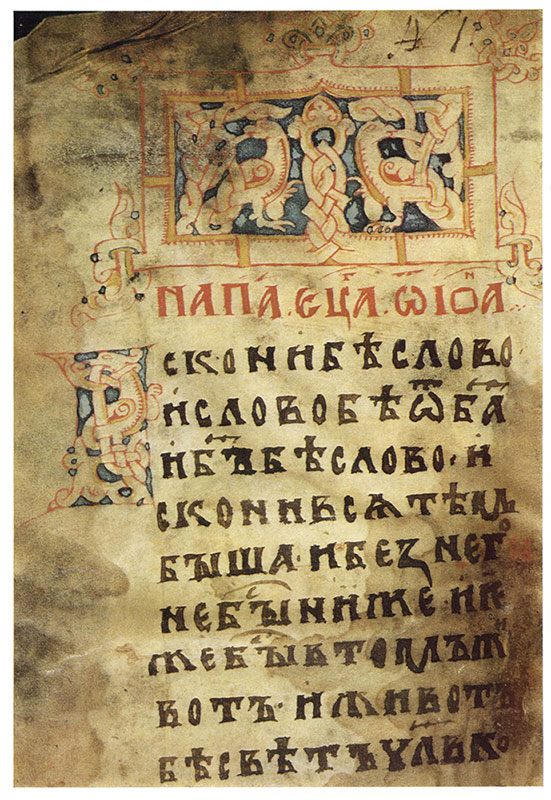 НАПА. ЄЦА. Ѿ ІѠА
СКОНИБѢСЛОВО
ИСЛОВОБѢѾБА
ИБЪБѢСЛОВО·И
СКОНИВСѦТѢМЬ
БЫША·ИБЕЗНЕГО
НЕБЫНИЖЕ·И
ЖЕБЫВТОМЪЖИ
ВОТЪ·ИЖИВОТЪ
БѢСВѢТЪЧЛЬКО